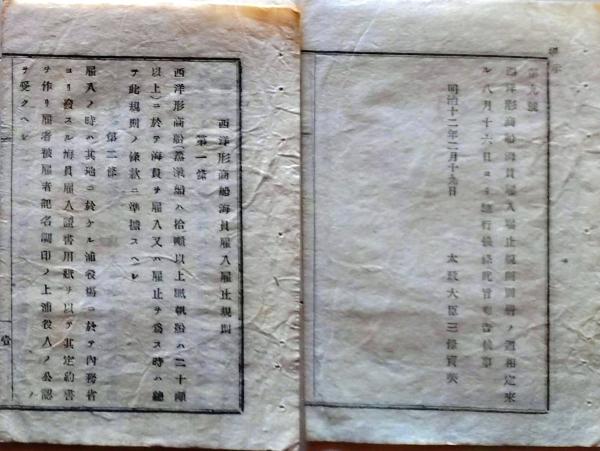 第九號
西洋形商船海員雇入雇止規則別冊ノ通相定來
ル八月十六日ヨリ施行候條此旨布告候事
明治十二年二月十九日
太政大臣三條實美
西洋形商船海員雇入雇止規則
第一條
西洋形商船(蒸滊船ハ拾噸以上風帆船ハ二十噸
以上)ニ於テ海員ヲ雇入又ハ雇止ヲ爲ス時ハ總
テ此規則ノ條款ニ準據スヘシ
第二條
雇入ノ時ハ其地ニ於ケル浦役場ニ於テ內務省
ヨリ發スル海員雇入證書用紙ヲ以テ其定約書
ヲ作リ雇者被雇者記名調印ノ上浦役人ノ公認
ヲ受クヘシ
壹